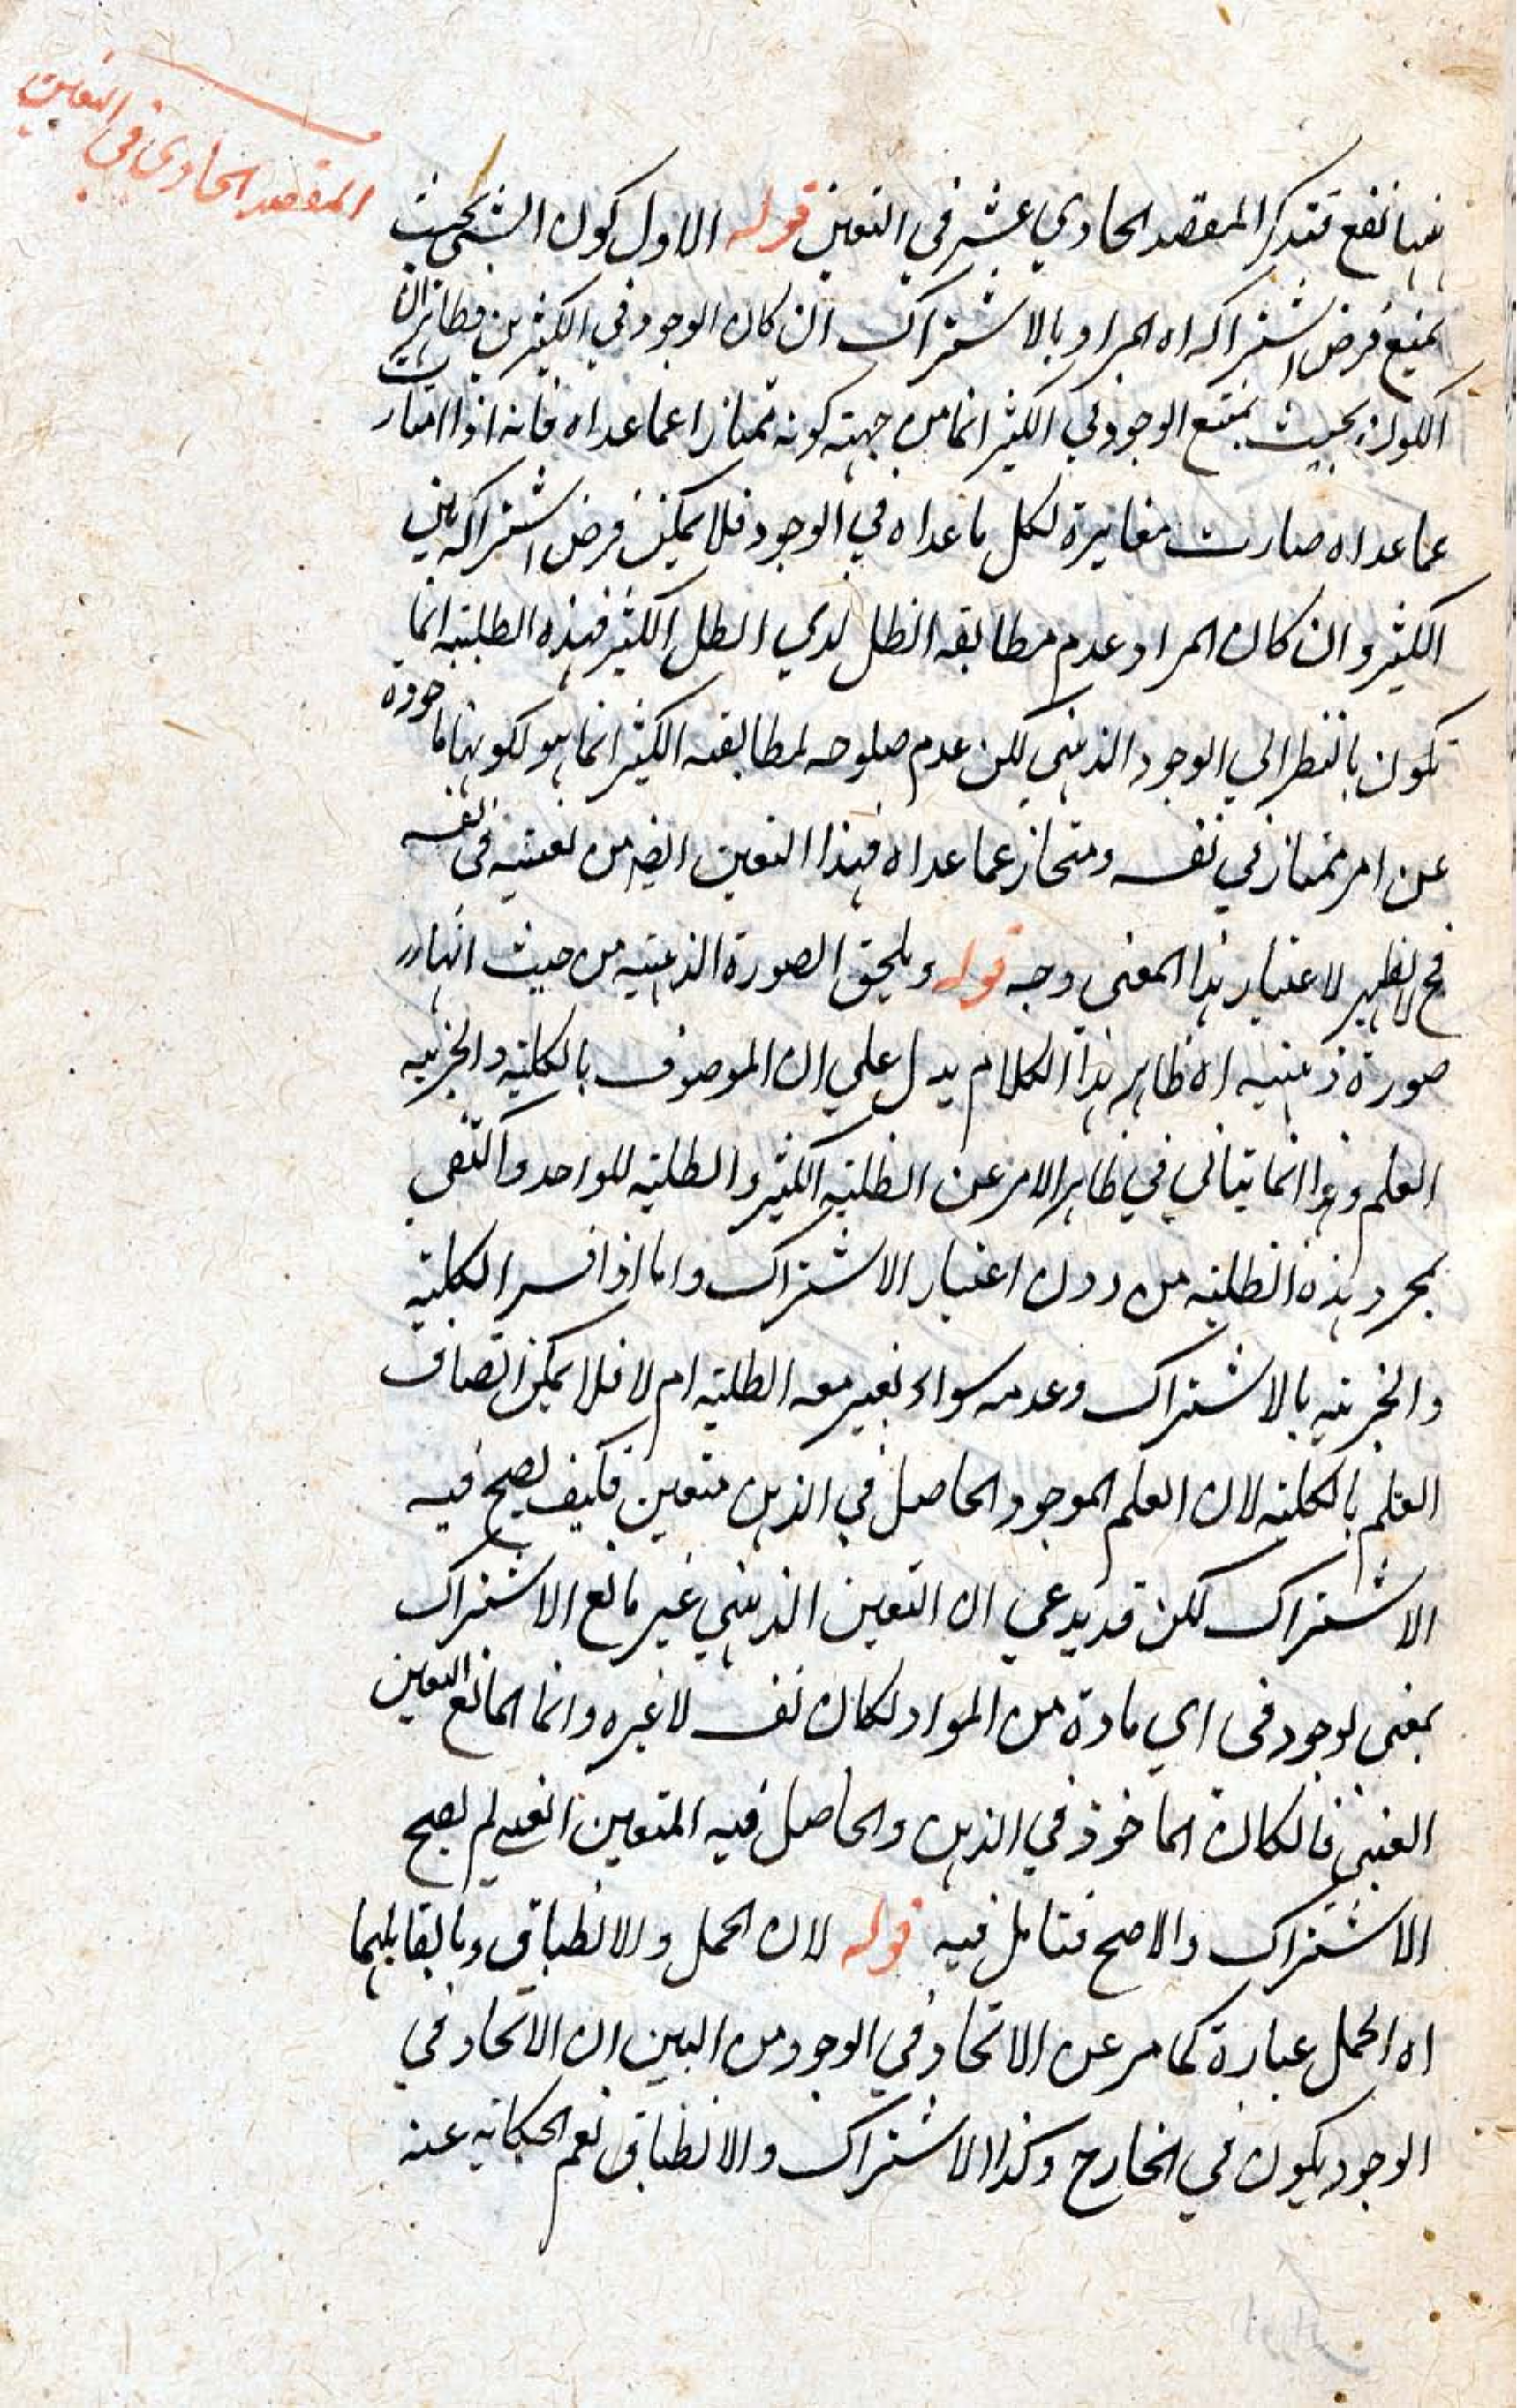 المقصد الحادي في التعين
ههنا نفع فتذكر المقصد الحادي عشر في التعين قوله الاول كون الشئ بحيث
يمنع فرض اشتراكه اه المراد بالاشتراك ان كان الوجود في الكثيرين فظاهر ان
الكون بحيث يمتنع الوجود في الكثير انما من جهة كونه ممتازا عما عداه فانه اذا امتازت
عما عداه صارت مغايرة لكل ما عداه في الوجود فلا يمكن فرض اشتراكه بين
الكثير وان كان المراد عدم مطابقة الظل لذي الظل الكثير فهذه الظلية انما
تكون بالنظر الي الوجود الذهني لكن عدم صلوحه لمطابقة الكثير انما هو لكونها ماخوذة
عن امر ممتاز في نفسه ومنحاز عما عداه فهذا التعين ايضا من تعينه في نفسه
فح لا يظهر لاعتبار هذا المعنى وجه قوله ويلحق الصورة الذهنية من حيث انها
صورة ذهنية اه ظاهر هذا الكلام يدل علي ان الموصوف بالكلية والجزئية
العلم وهذا انما يتاتي في ظاهر الامر عن الظلية الكثير والظلية للواحد واكتفي
بمجرد هذه الظلية من دون اعتبار الاشتراك واما اذا فسر الكلية
والجزئية بالاشتراك وعدمه سواء يعتبر معه الظلية ام لا فلا يمكن اتصاف
العلم بالكلية لان العلم الموجود الحاصل في الذهن متعين فكيف يصح فيه
الاشتراك لكن قد يدعي ان التعين الذهني غير مانع الاشتراك
بمعنى لو وجد في اي مادة من المواد لكان نفسه لا غيره وانما المانع التعين
العيني فالكان الماخوذ في الذهن والحاصل فيه المتعين العيني لم يصح
الاشتراك والا صح فتامل فيه قوله لان الحمل والانطباق وما يقابلهما
اه الحمل عبارة كما مر عن الاتحاد في الوجود من البين ان الاتحاد في
الوجود يكون في الخارج وكذا الاشتراك والانطباق نعم الحكاية عنه